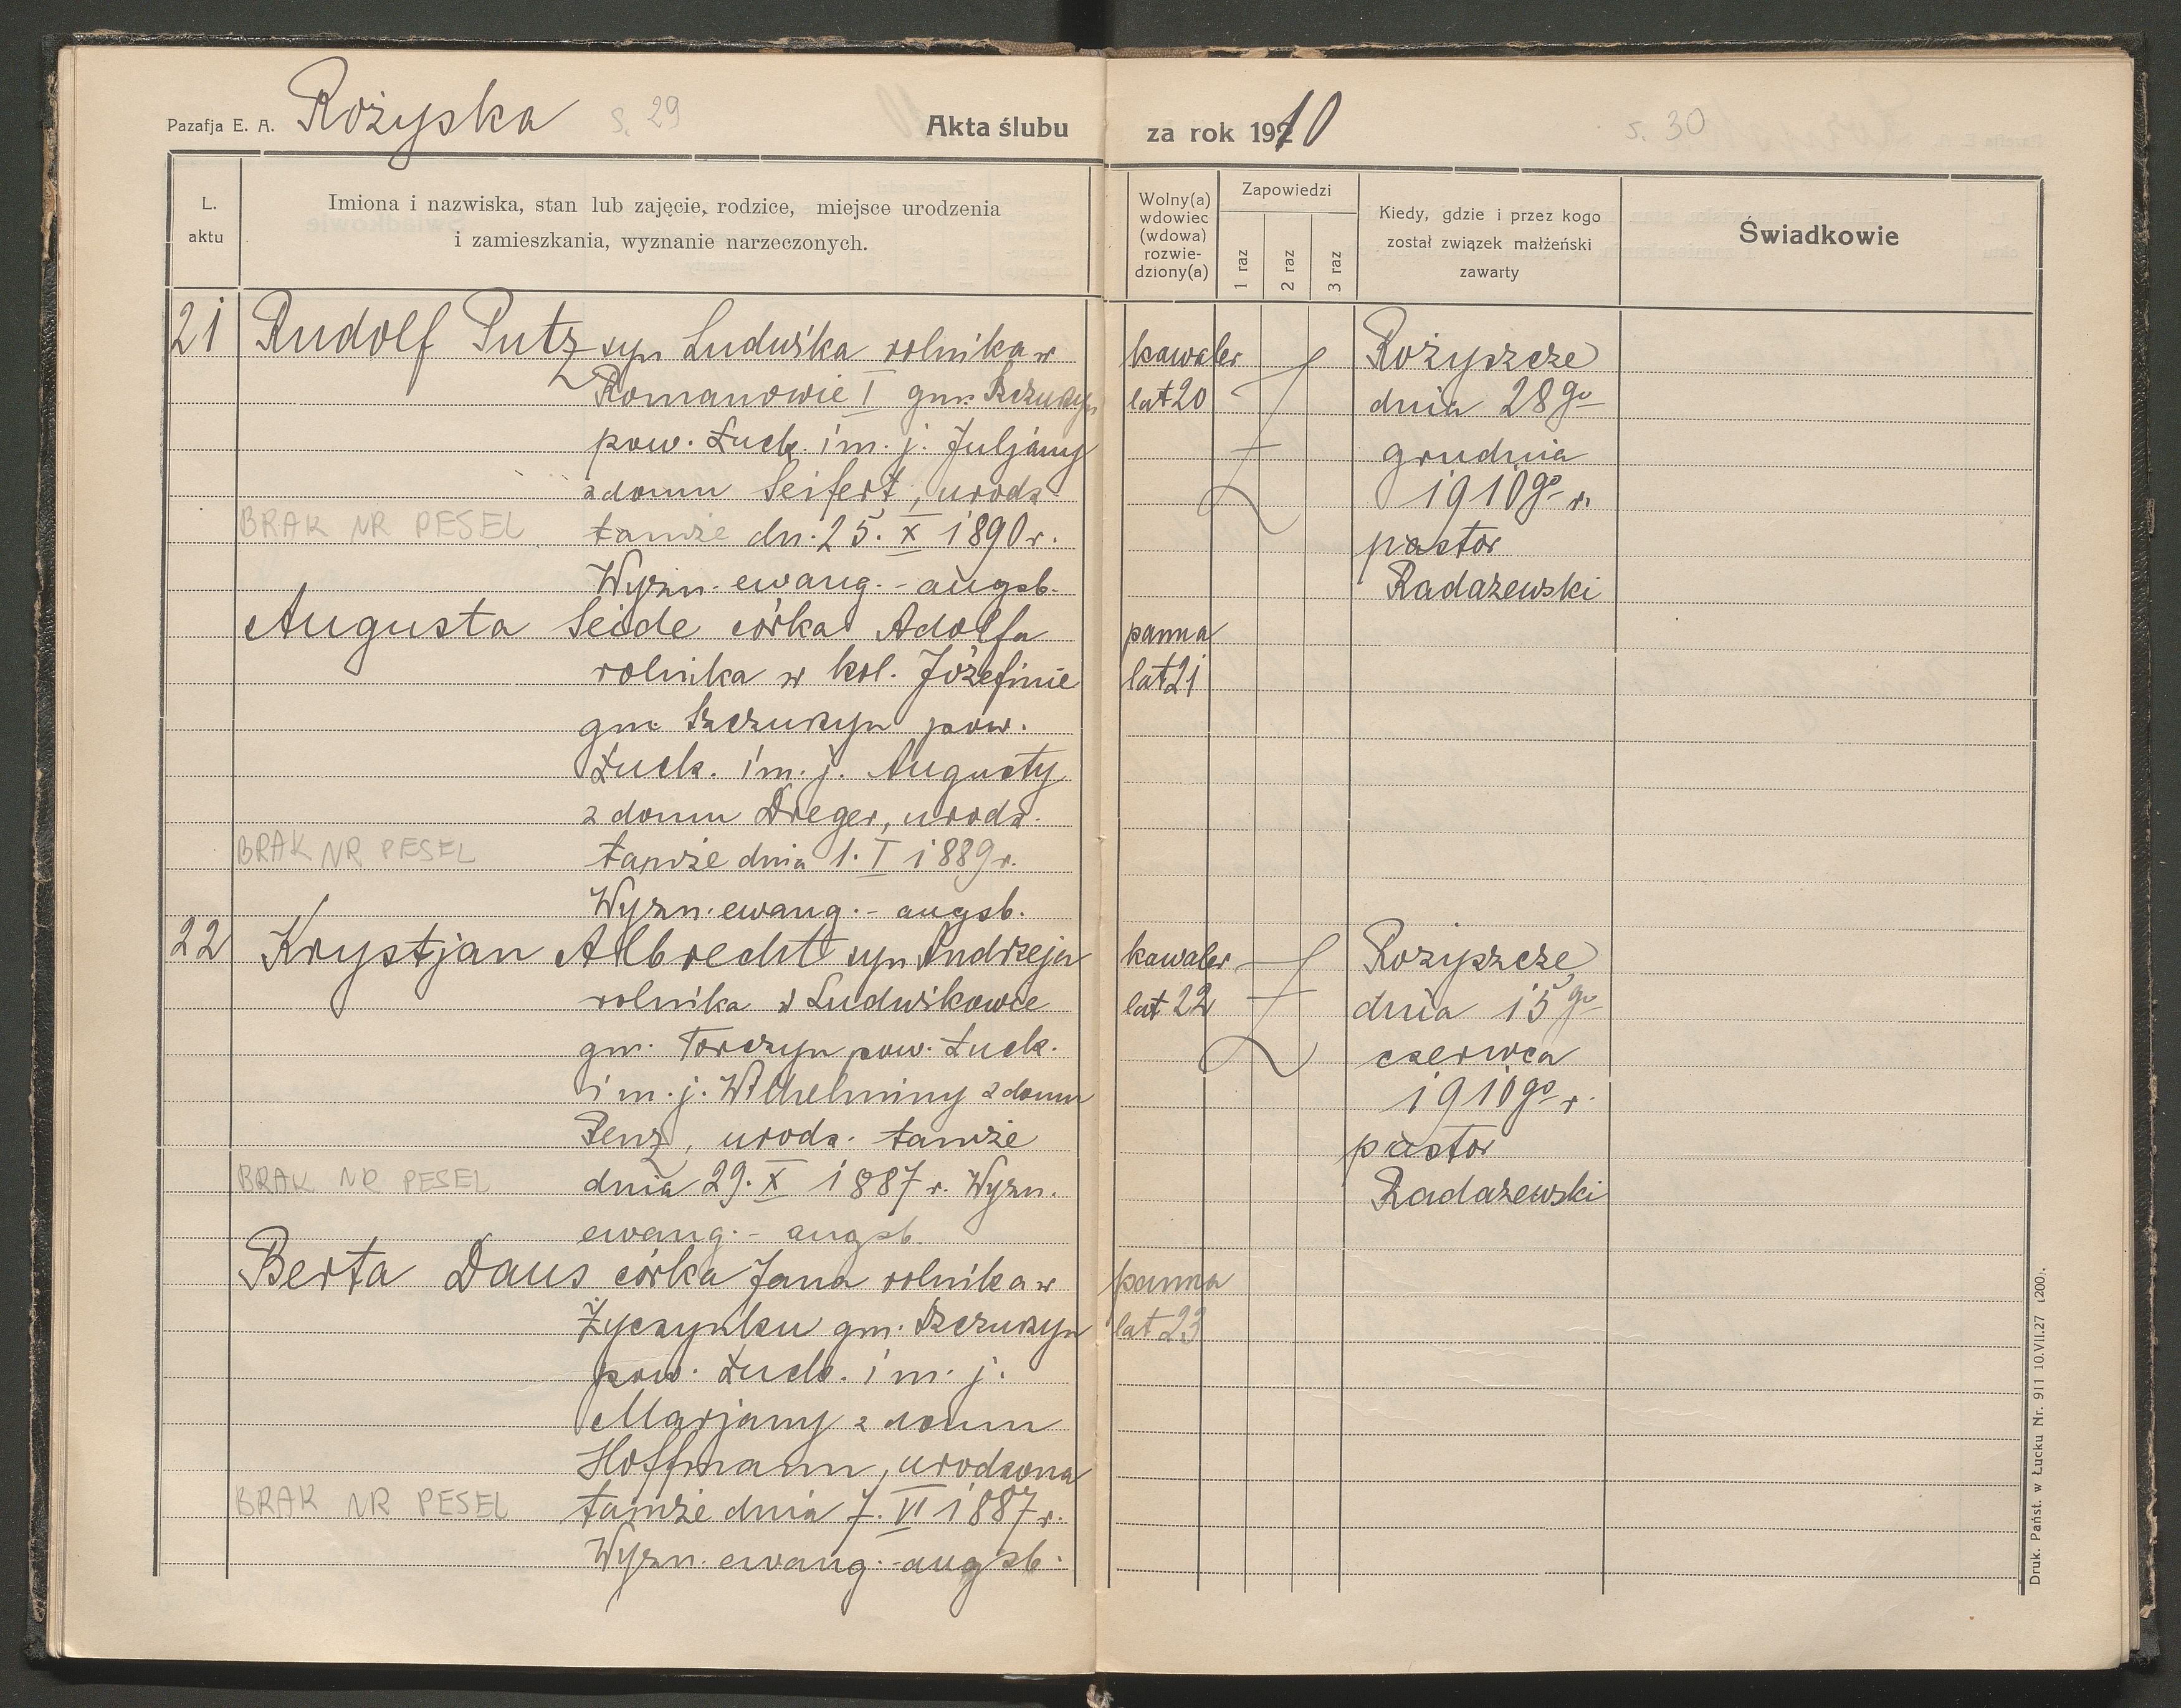 Pazafja E. A. Rożyska s. 29 Akta ślubu
L. aktu
Imiona i nazwiska, stan lub zajęcie, rodzice, miejsce urodzenia
i zamieszkania, wyznanie narzeczonych.
21 Rudolf Putz syn Ludwika rolnika w
Romanowie I gm. Szczurzyn
pow. Łuck. i m. j. Juljany
z domu Seifert, urodz.
BRAK NR PESEL tamże dn. 25. X 1890 r.
Wyzn. ewang. - augsb.
Augusta Seide córka Adolfa
rolnika w kol. Józefinie
gm. Szczurzyn pow.
Łuck. i m. j. Augusty
z domu Dreger, urodz.
BRAK NR PESEL tamże dnia 1. I 1889 r.
Wyzn. ewang. - augsb.
22 Krystjan Albrecht syn Andrzeja
rolnika w Ludwikowce
gm. Torczyn pow. Łuck.
i m. j. Wilhelminy z domu
Penz, urodz. tamże
BRAK NR PESEL dnia 29. X 1887 r. Wyzn.
ewang. - augsb.
Berta Daus córka Jana rolnika w
Życzynku gm. Szczurzyn
pow. Łuck. i m. j.
Marjany z domu
Hoffmann, urodzona
BRAK NR PESEL tamże dnia 7. VI 1887 r.
Wyzn. ewang. - augsb.
za rok 1910 s. 30
Wolny(a)
wdowiec
(wdowa)
rozwie-
dziony(a)
Zapowiedzi
1 raz
2 raz
3 raz
Kiedy, gdzie i przez kogo
został związek małżeński
zawarty
Świadkowie
kawaler
lat 20
Rożyszcze
dnia 28go
grudnia
1910go r.
pastor
Radazewski
panna
lat 21
kawaler
lat 22
Rożyszcze,
dnia 15go
czerwca
1910go r.
pastor
Radazewski
panna
lat 23
Druk. Państ. w Łucku Nr. 911 10.VII.27 (200).